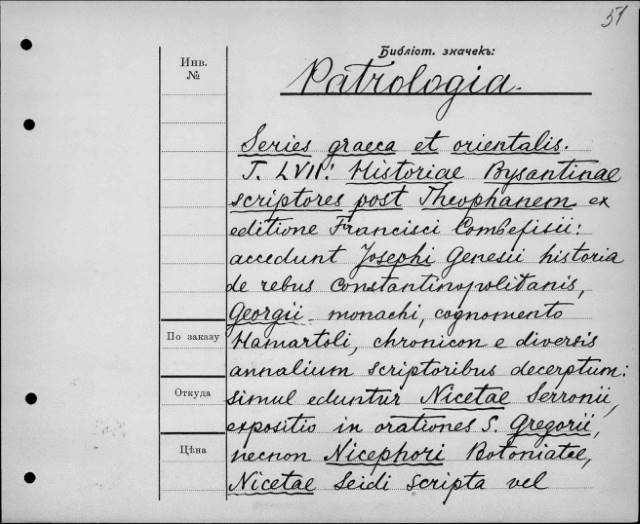 51
Библіот. значекъ:
Инв.
№
Patrologia.
Series graeca et orientalis.
T. LVII: Historiae Bysantinae
scriptores post Theophanem ex
editione Francisci Combefisii:
accedunt Josephi Genesii historia
de rebus constantinopolitanis,
Georgii monachi, cognomento
По заказу
Hamartoli, chronicon e diversis
annalium scriptoribus decerptum:
Откуда
simul eduntur Nicetae Serronii,
expositio in orationes S. Gregorii,
Цѣна
necnon Nicephori Botoniatae,
Nicetae Seidi scripta vel